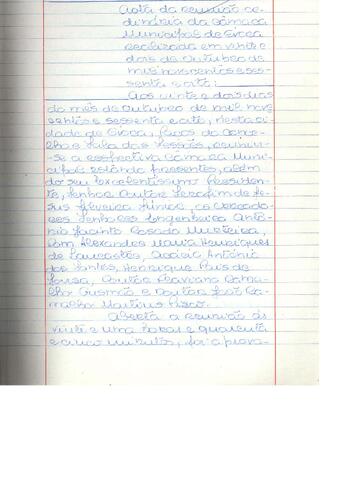 Acta da reunião or-
dinária da Câmara
Municipal de Évora
realizada em vinte e
dois de Outubro de
mil novecentos e ses-
senta e oito:
Aos vinte e dois dias
do mês de Outubro de mil nove
centos e sessenta e oito, nesta ci-
dade de Évora, Paços do Conce-
lho e sala das sessões, reuniu-
-se a respectiva Câmara Muni-
cipal estando presentes, além
do seu Excelentíssimo Presiden-
te, Senhor Doutor Serafim de Je-
sus Silveira Júnior, os Vereado-
res Senhores Engenheiro Antó-
nio Jacinto Casado Murteira,
Dom Alexandre Maria Henriques
de Lancastre, Acácio António
de Fontes, Henrique Pais de
Sousa, Doutor Flaviano Carva-
lho Gusmão e Doutor José Car-
valho Martins
Aberta a reunião às
vinte e uma horas e quarenta
e cinco minutos, foi aprova-